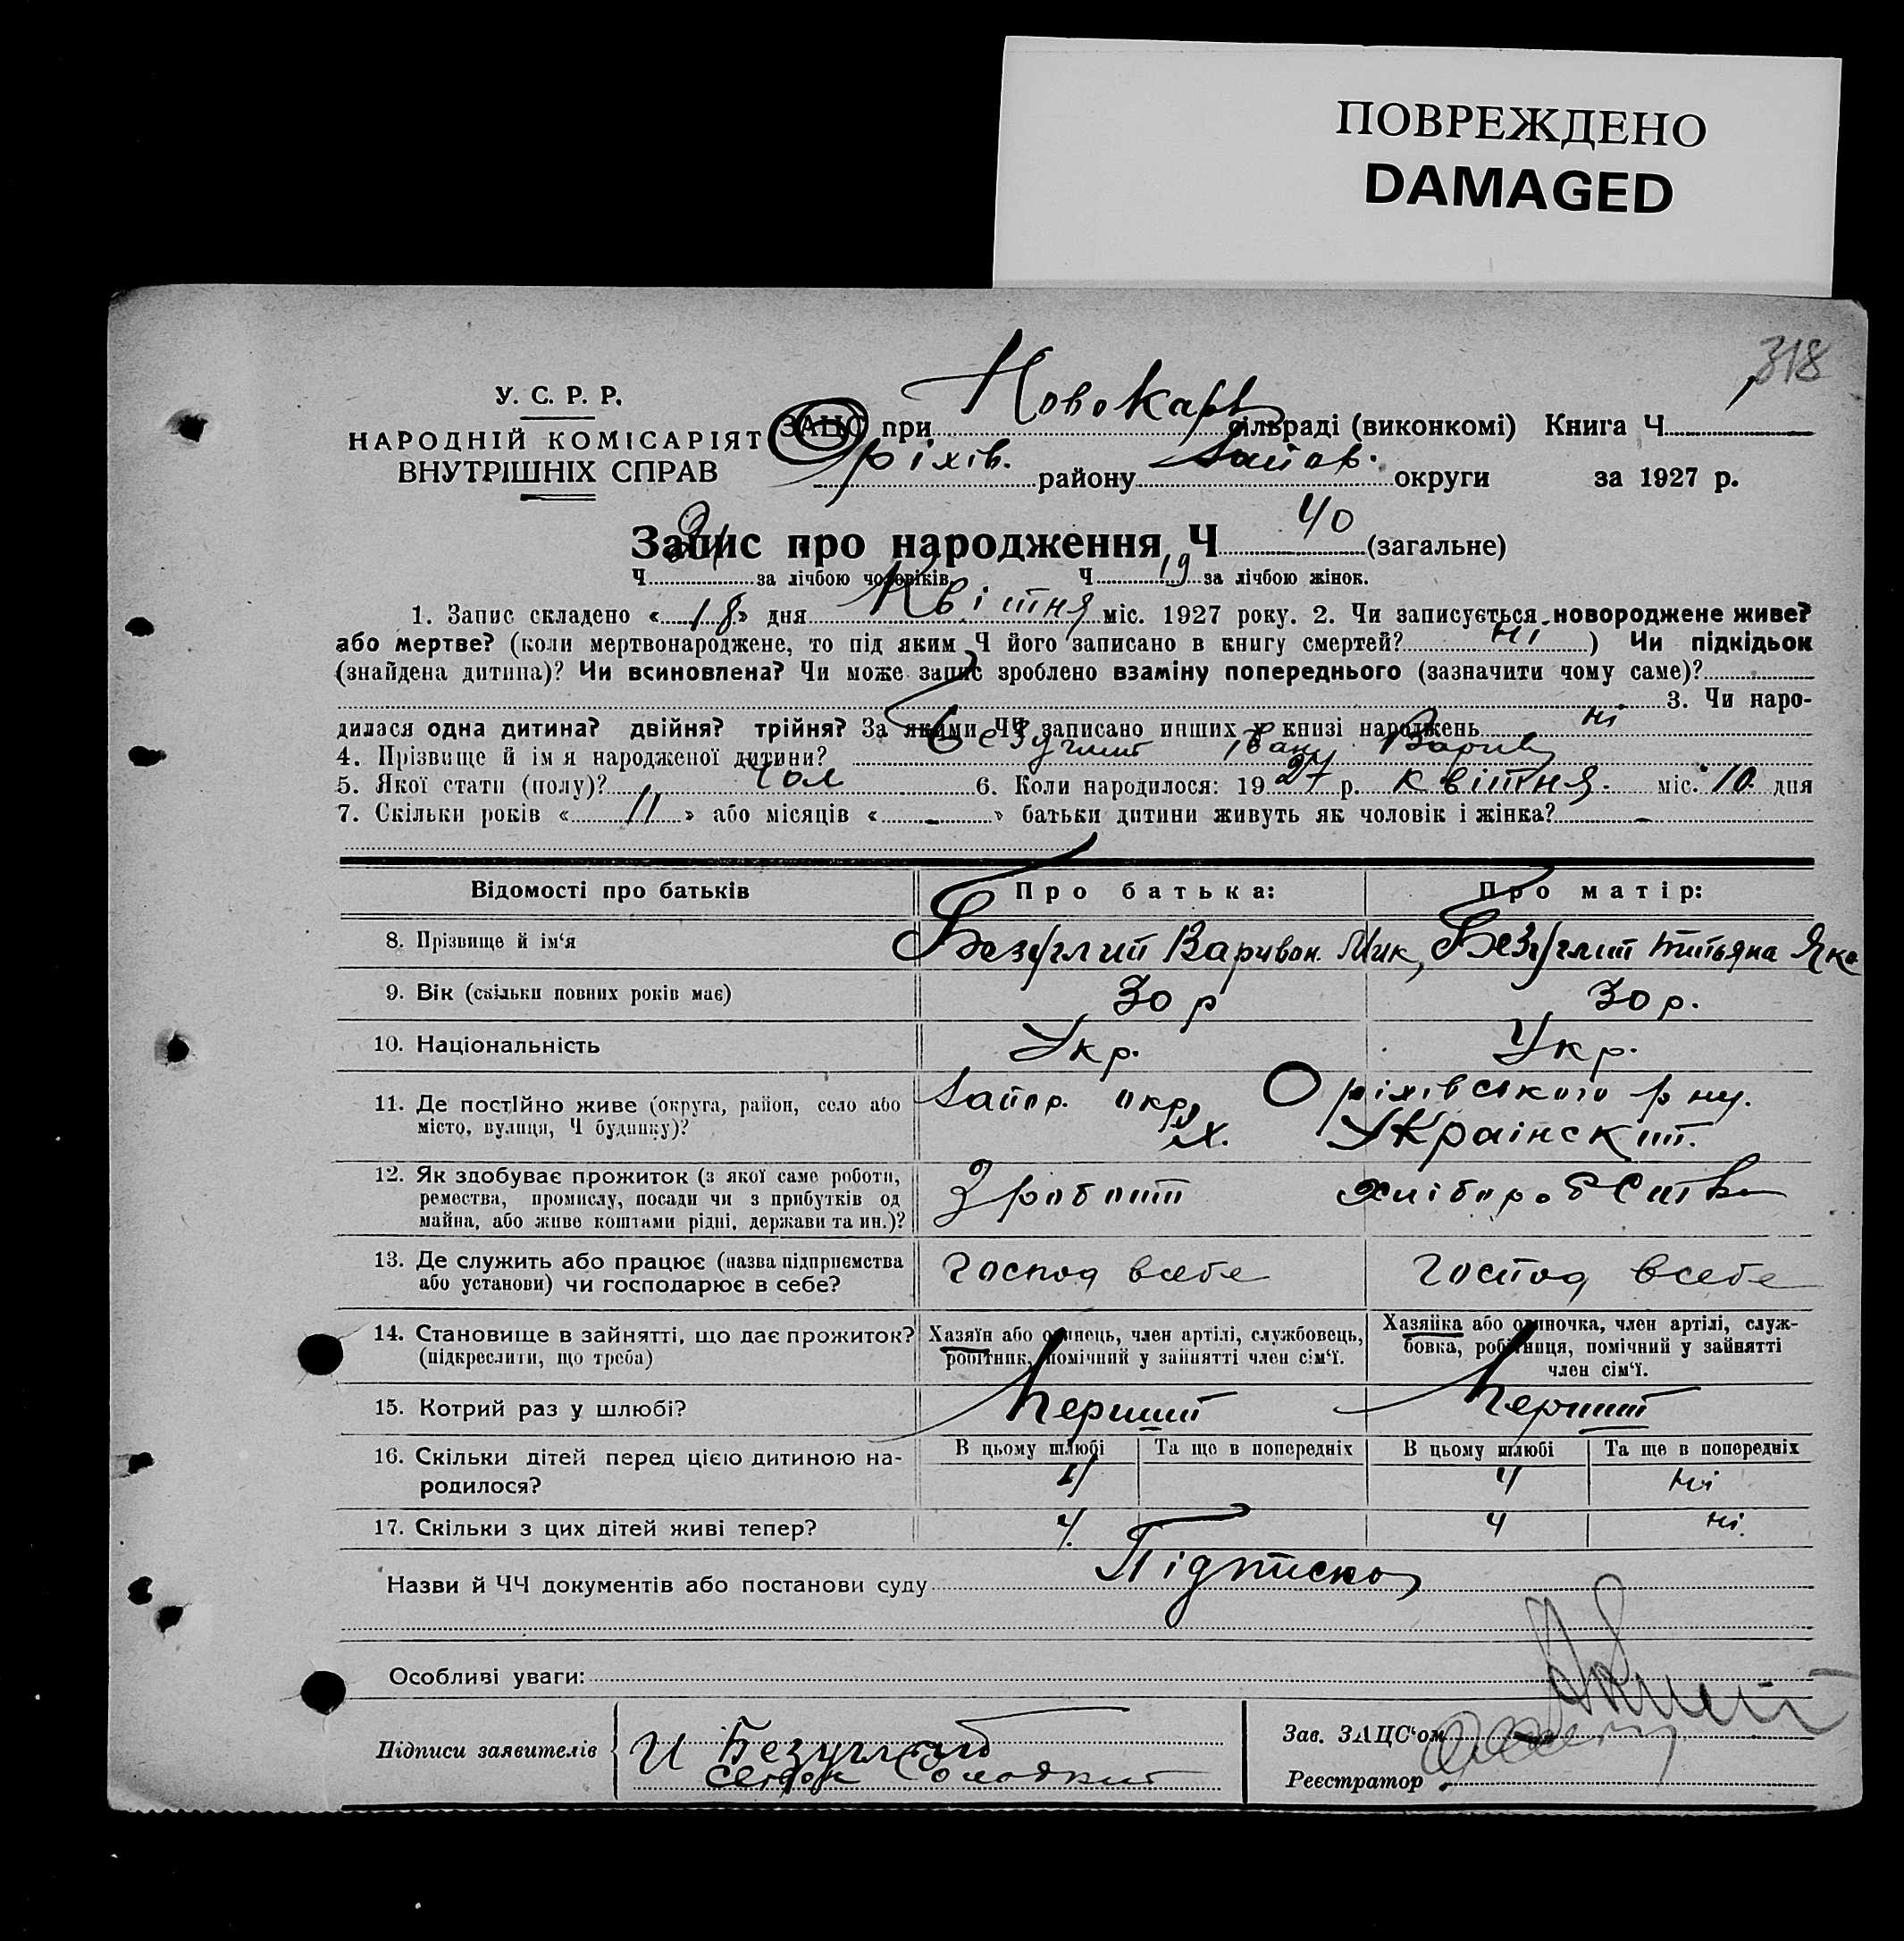 ПОВРЕЖДЕНО
DAMAGED
318
У. С. Р. Р.
НАРОДНІЙ КОМІСАРІЯТ
ВНУТРІШНІХ СПРАВ
ЗАЦС при Новокарл сільраді (виконкомі) Книга Ч.
Оріхів. району Запор. округи за 1927 р.
Запис про народження Ч 40 (загальне)
Ч 21 за лічбою чоловіків. Ч 19 за лічбою жінок.
1. Запис складено «18» дня Квітня міс. 1927 року. 2. Чи записується новороджене живе?
або мертве? (коли мертвонароджене, то під яким Ч його записано в книгу смертей? ні ) Чи підкідьок
(знайдена дитина)? Чи всиновлена? Чи може запис зроблено взаміну попереднього (зазначити чому саме)?
3. Чи наро-
дилася одна дитина? двійня? трійня? За якими ЧЧ записано инших у книзі народжень ні
4. Прізвище й ім я народженої дитини? Безуглий Іван Варив
5. Якої стати (полу)? Чол 6. Коли народилося: 1927 р. квітня. міс. 10. дня
7. Скільки років « 11 » або місяців « - » батьки дитини живуть як чоловік і жінка? -
Відомості про батьків Про батька: Про матір:
8. Прізвище й ім'я Безуглий Варивон. Мик, Безуглий Титьяна Яко
9. Вік (скільки повних років має) 30 р 30 р.
10. Національність Укр. Укр.
11. Де постійно живе (округа, район, село або Запор. окр Оріхівського р ну.
місто, вулиця, Ч будинку)? х. Українский.
12. Як здобуває прожиток (з якої саме роботи,
ремества, промислу, посади чи з прибутків од З роботи хліборобства
майна, або живе коштами рідні, держави та ин.)?
13. Де служить або працює (назва підприємства Господ всебе Господ всебе
або установи) чи господарює в себе?
14. Становище в зайнятті, що дає прожиток? Хазяїн або одинець, член артілі, службовець, Хазяйка або одиночка, член артілі, служ-
(підкреслити, що треба) робітник, помічний у зайнятті член сім'ї. бовка, робітниця, помічний у зайнятті
член сім'ї.
15. Котрий раз у шлюбі? Перший Перший
16. Скільки дітей перед цією дитиною на- В цьому шлюбі Та ще в попередніх В цьому шлюбі Та ще в попередніх
родилося? 4 4 ні
17. Скільки з цих дітей живі тепер? 4. 4 ні.
Назви й ЧЧ документів або постанови суду Підписка
Особливі уваги:
Підписи заявителів И Безуглый Зав. ЗАЦС'ом
Реєстратор